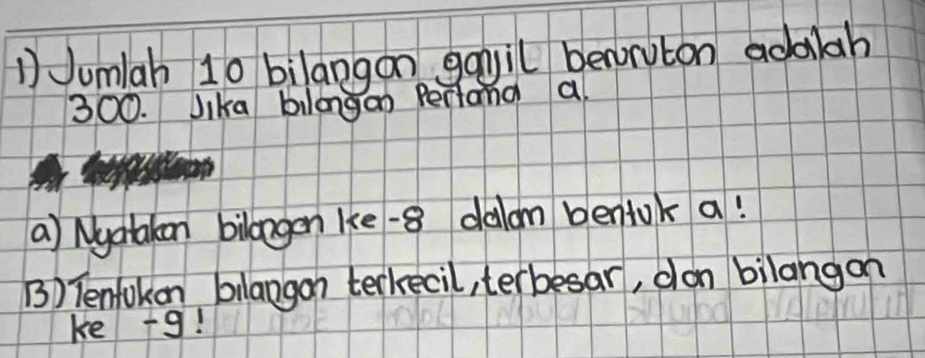 1) Jumlah 10 bilangan ganjil berurutan adalah
300. Jika bilangan Pertama a.
a) Nyatakan bilangan ke-8 dalam bentuk a!
B) Tentukan bilangan terkecil, terbesar, dan bilangan
ke -9!